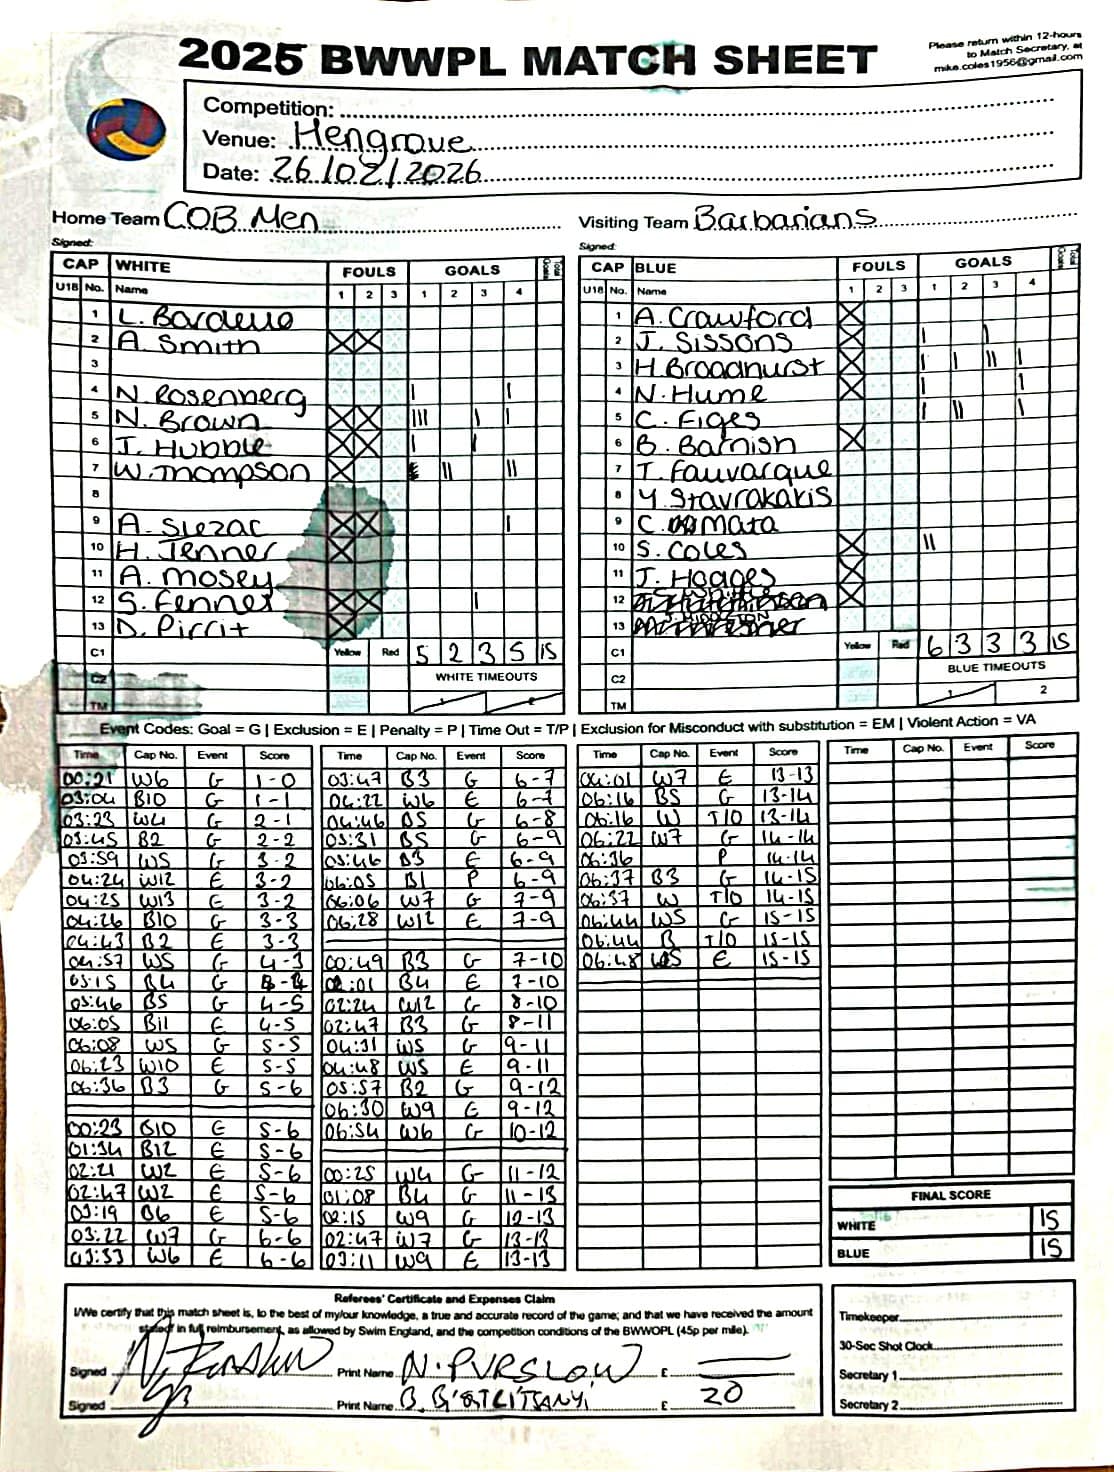 Please return within 12-hours
to Match Secretary, at
mike.coles1956@gmail.com
2025 BWWPL MATCH SHEET
Competition:
Venue: Hengrove
Date: 26/02/2026
Home Team COB Men
Visiting Team Barbarians
Signed:
Signed:
CAP WHITE FOULS GOALS Total Goals
U18 No. Name 1 2 3 1 2 3 4
1 L. Bardello
2 A. Smith X X
3
4 N. Rosenberg I I
5 N. Brown X X III I I
6 J. Hubble X X I I
7 W. Thompson X II II
8
9 A. Slezac X X I
10 H. Jenner X
11 A. Mosey
12 S. Fenner X X I
13 D. Pirrit X
C1 Yellow Red 5 2 3 5 15
C2 WHITE TIMEOUTS
TM 1 2
CAP BLUE FOULS GOALS Total Goals
U18 No. Name 1 2 3 1 2 3 4
1 A. Crawford X
2 J. Sissons X I I
3 H. Broadhurst X I I II I
4 N. Hume X I I
5 C. Figes I II I
6 B. Barnish X
7 T. Fauvarque
8 Y. Stavrakakis
9 C. Mata
10 S. Coles X II
11 J. Hodges X
12 X
13
C1 Yellow Red 6 3 3 3 15
C2 BLUE TIMEOUTS
TM 1 2
Event Codes: Goal = G | Exclusion = E | Penalty = P | Time Out = T/P | Exclusion for Misconduct with substitution = EM | Violent Action = VA
Time Cap No. Event Score
00:21 W6 G 1-0
03:04 B10 G 1-1
03:23 W4 G 2-1
03:45 B2 G 2-2
03:59 W5 G 3-2
04:24 W12 E 3-2
04:25 W13 E 3-2
04:26 B10 G 3-3
04:43 B2 E 3-3
04:57 W5 G 4-3
05:15 B4 G 4-4
05:46 B5 G 4-5
06:05 B11 E 4-5
06:08 W5 G 5-5
06:23 W10 E 5-5
06:36 B3 G 5-6
00:23 B10 E 5-6
01:34 B12 E 5-6
02:21 W2 E 5-6
02:47 W2 E 5-6
03:19 B6 E 5-6
03:22 W7 G 6-6
03:33 W6 E 6-6
Time Cap No. Event Score
03:47 B3 G 6-7
04:22 W6 E 6-7
04:46 B5 G 6-8
05:31 B5 G 6-9
05:46 B3 E 6-9
06:05 B1 P 6-9
06:06 W7 G 7-9
06:28 W12 E 7-9
00:49 B3 G 7-10
02:01 B4 E 7-10
02:24 W12 G 8-10
02:47 B3 G 8-11
04:31 W5 G 9-11
04:48 W5 E 9-11
05:57 B2 G 9-12
06:30 W9 E 9-12
06:54 W6 G 10-12
00:25 W4 G 11-12
01:08 B4 G 11-13
02:15 W9 G 12-13
02:47 W7 G 13-13
03:11 W9 E 13-13
Time Cap No. Event Score
04:01 W7 E 13-13
06:16 B5 G 13-14
06:16 W T/O 13-14
06:22 W7 G 14-14
06:36 P 14-14
06:37 B3 G 14-15
06:37 W T/O 14-15
06:44 W5 G 15-15
06:44 B T/O 15-15
06:48 W5 E 15-15
Time Cap No. Event Score
FINAL SCORE
WHITE 15
BLUE 15
Referees' Certificate and Expenses Claim
I/We certify that this match sheet is, to the best of my/our knowledge, a true and accurate record of the game; and that we have received the amount
stated in full reimbursement, as allowed by Swim England, and the competition conditions of the BWWOPL (45p per mile).
Signed Print Name N. PURSLOW £
Signed Print Name B. £ 20
Timekeeper
30-Sec Shot Clock
Secretary 1
Secretary 2